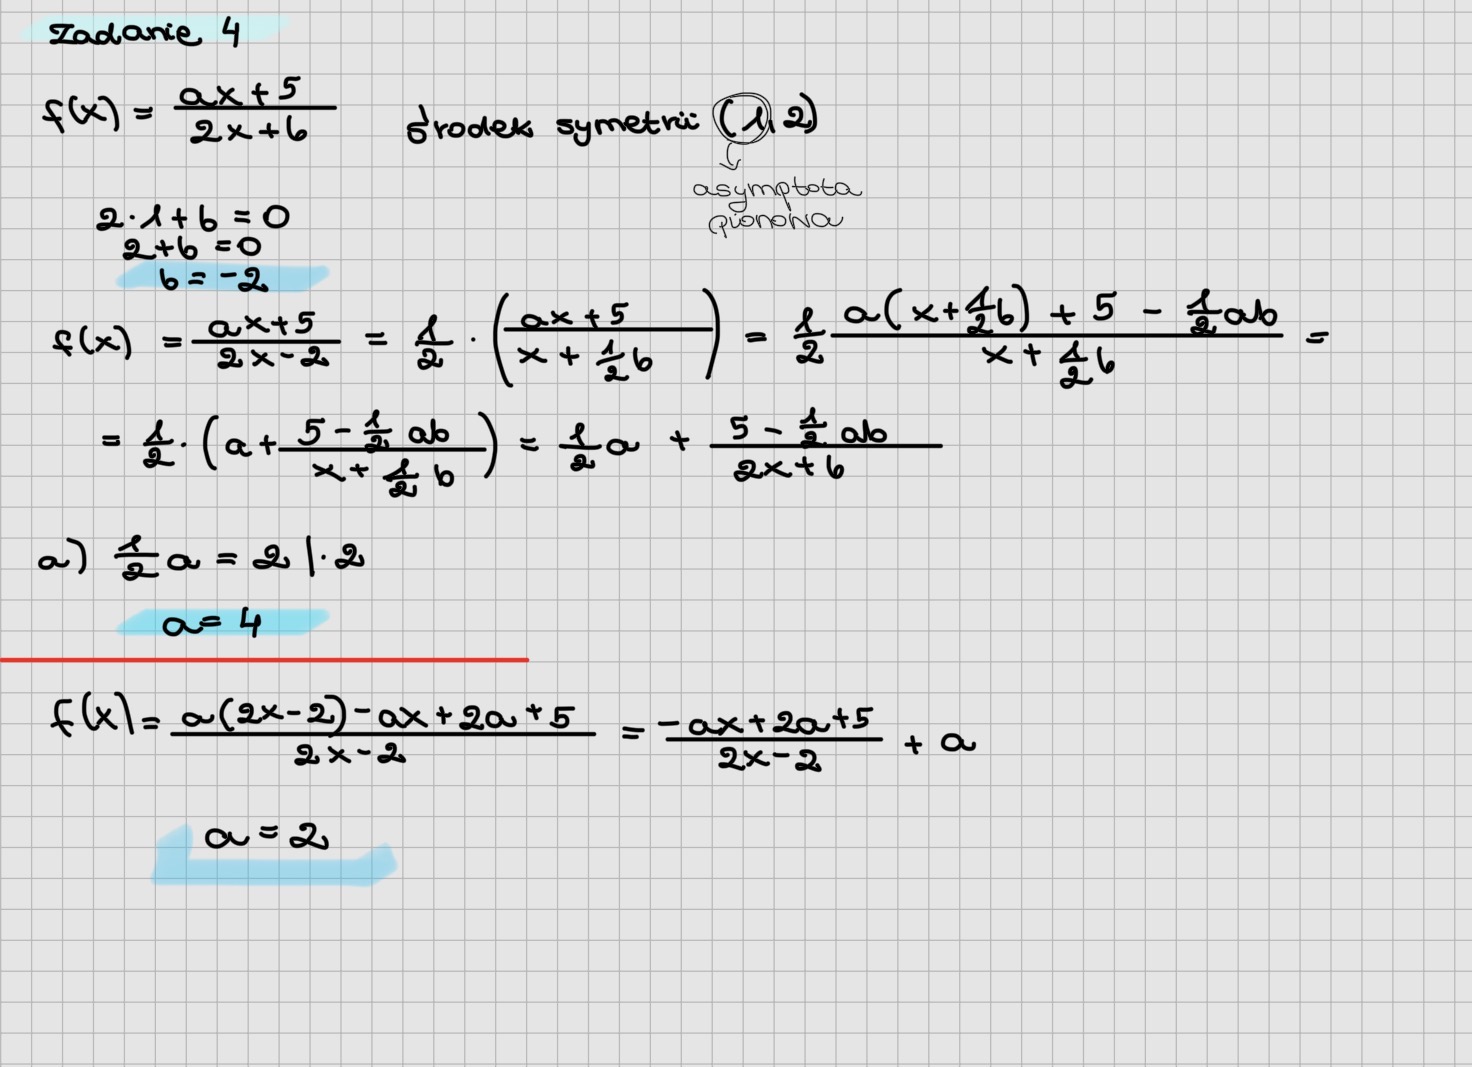 Zadanie 4
f(x) = \frac{ax+5}{2x+b} środek symetrii (1,2)
asymptota
pionowa
2·1+b = 0
2+b = 0
b = -2
f(x) = \frac{ax+5}{2x-2} = \frac{1}{2} · \left(\frac{ax+5}{x+\frac{1}{2}b}\right) = \frac{1}{2} \frac{a(x+\frac{1}{2}b) + 5 - \frac{1}{2}ab}{x+\frac{1}{2}b} =
= \frac{1}{2} · \left(a + \frac{5-\frac{1}{2}ab}{x+\frac{1}{2}b}\right) = \frac{1}{2}a + \frac{5-\frac{1}{2}ab}{2x+b}
a) \frac{1}{2}a = 2 |·2
a = 4
f(x) = \frac{a(2x-2)-ax+2a+5}{2x-2} = \frac{-ax+2a+5}{2x-2} + a
a = 2